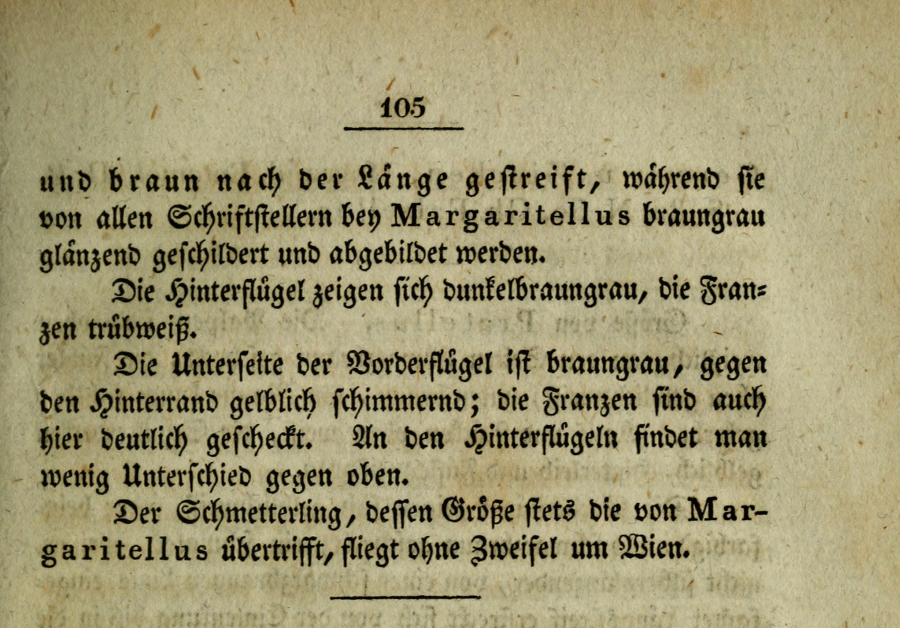 105
und braun nach der Länge gestreift, während sie
von allen Schriftstellern bey Margaritellus braungrau
glänzend geschildert und abgebildet werden.
Die Hinterflügel zeigen sich dunkelbraungrau, die Fran-
zen trübweiß.
Die Unterseite der Vorderflügel ist braungrau, gegen
den Hinterrand gelblich schimmernd; die Franzen sind auch
hier deutlich gescheckt. An den Hinterflügeln findet man
wenig Unterschied gegen oben.
Der Schmetterling, dessen Größe stets die von Mar-
garitellus übertrifft, fliegt ohne Zweifel um Wien.